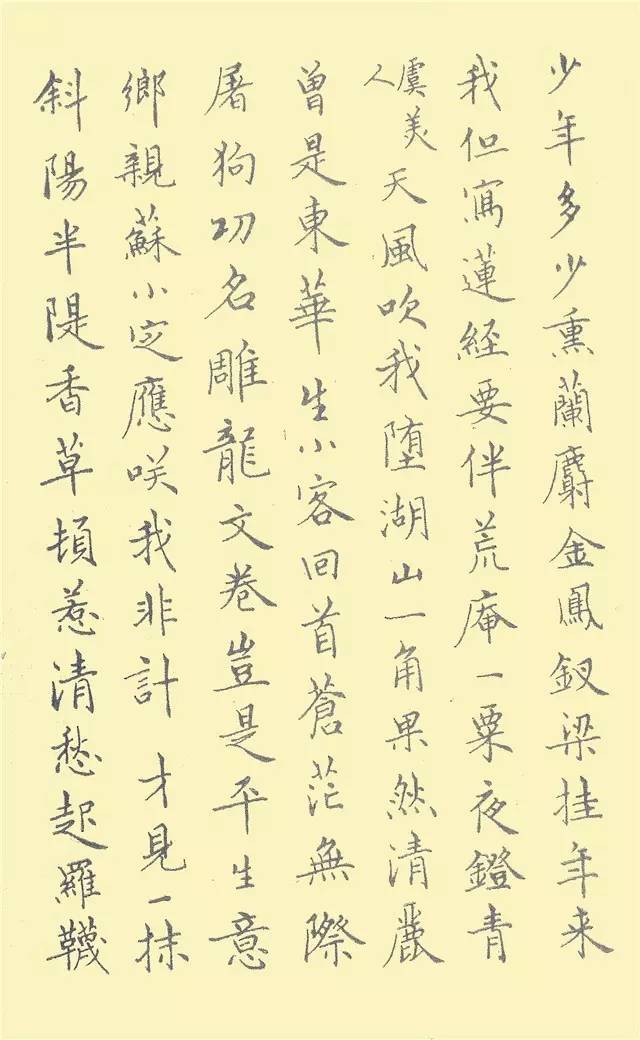 少年多少熏蘭麝金鳳釵梁挂年来
我但寫蓮經要伴荒庵一粟夜鐙青
虞美人天風吹我堕湖山一角果然清麗
曾是東華生小客回首蒼茫無際
屠狗功名雕龍文卷豈是平生意
鄉親蘇小定應咲我非計才見一抹
斜陽半隄香草頓惹清愁起羅韈